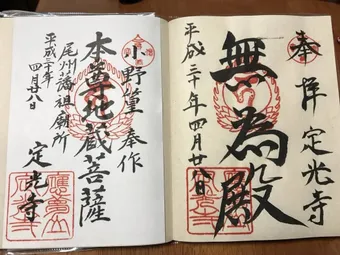 奉拝 定光寺
無為殿
平成三十年四月廿八日
小野篁奉作
本尊地蔵菩薩
尾州藩祖廟所
平成三十年四月廿八日
定光寺